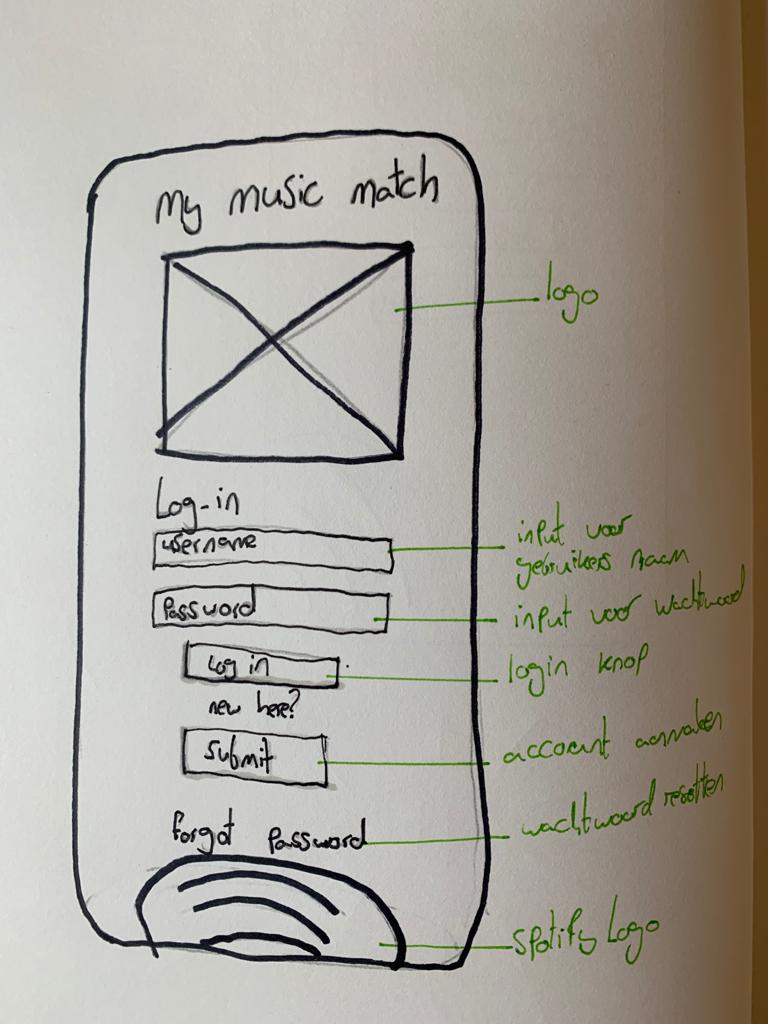 my music match
logo
Log-in
username
input voor
gebruikers naam
Password
input voor wachtwoord
Log in
login knop
new here?
submit
account aanmaken
forgot password
wachtwoord resetten
Spotify Logo